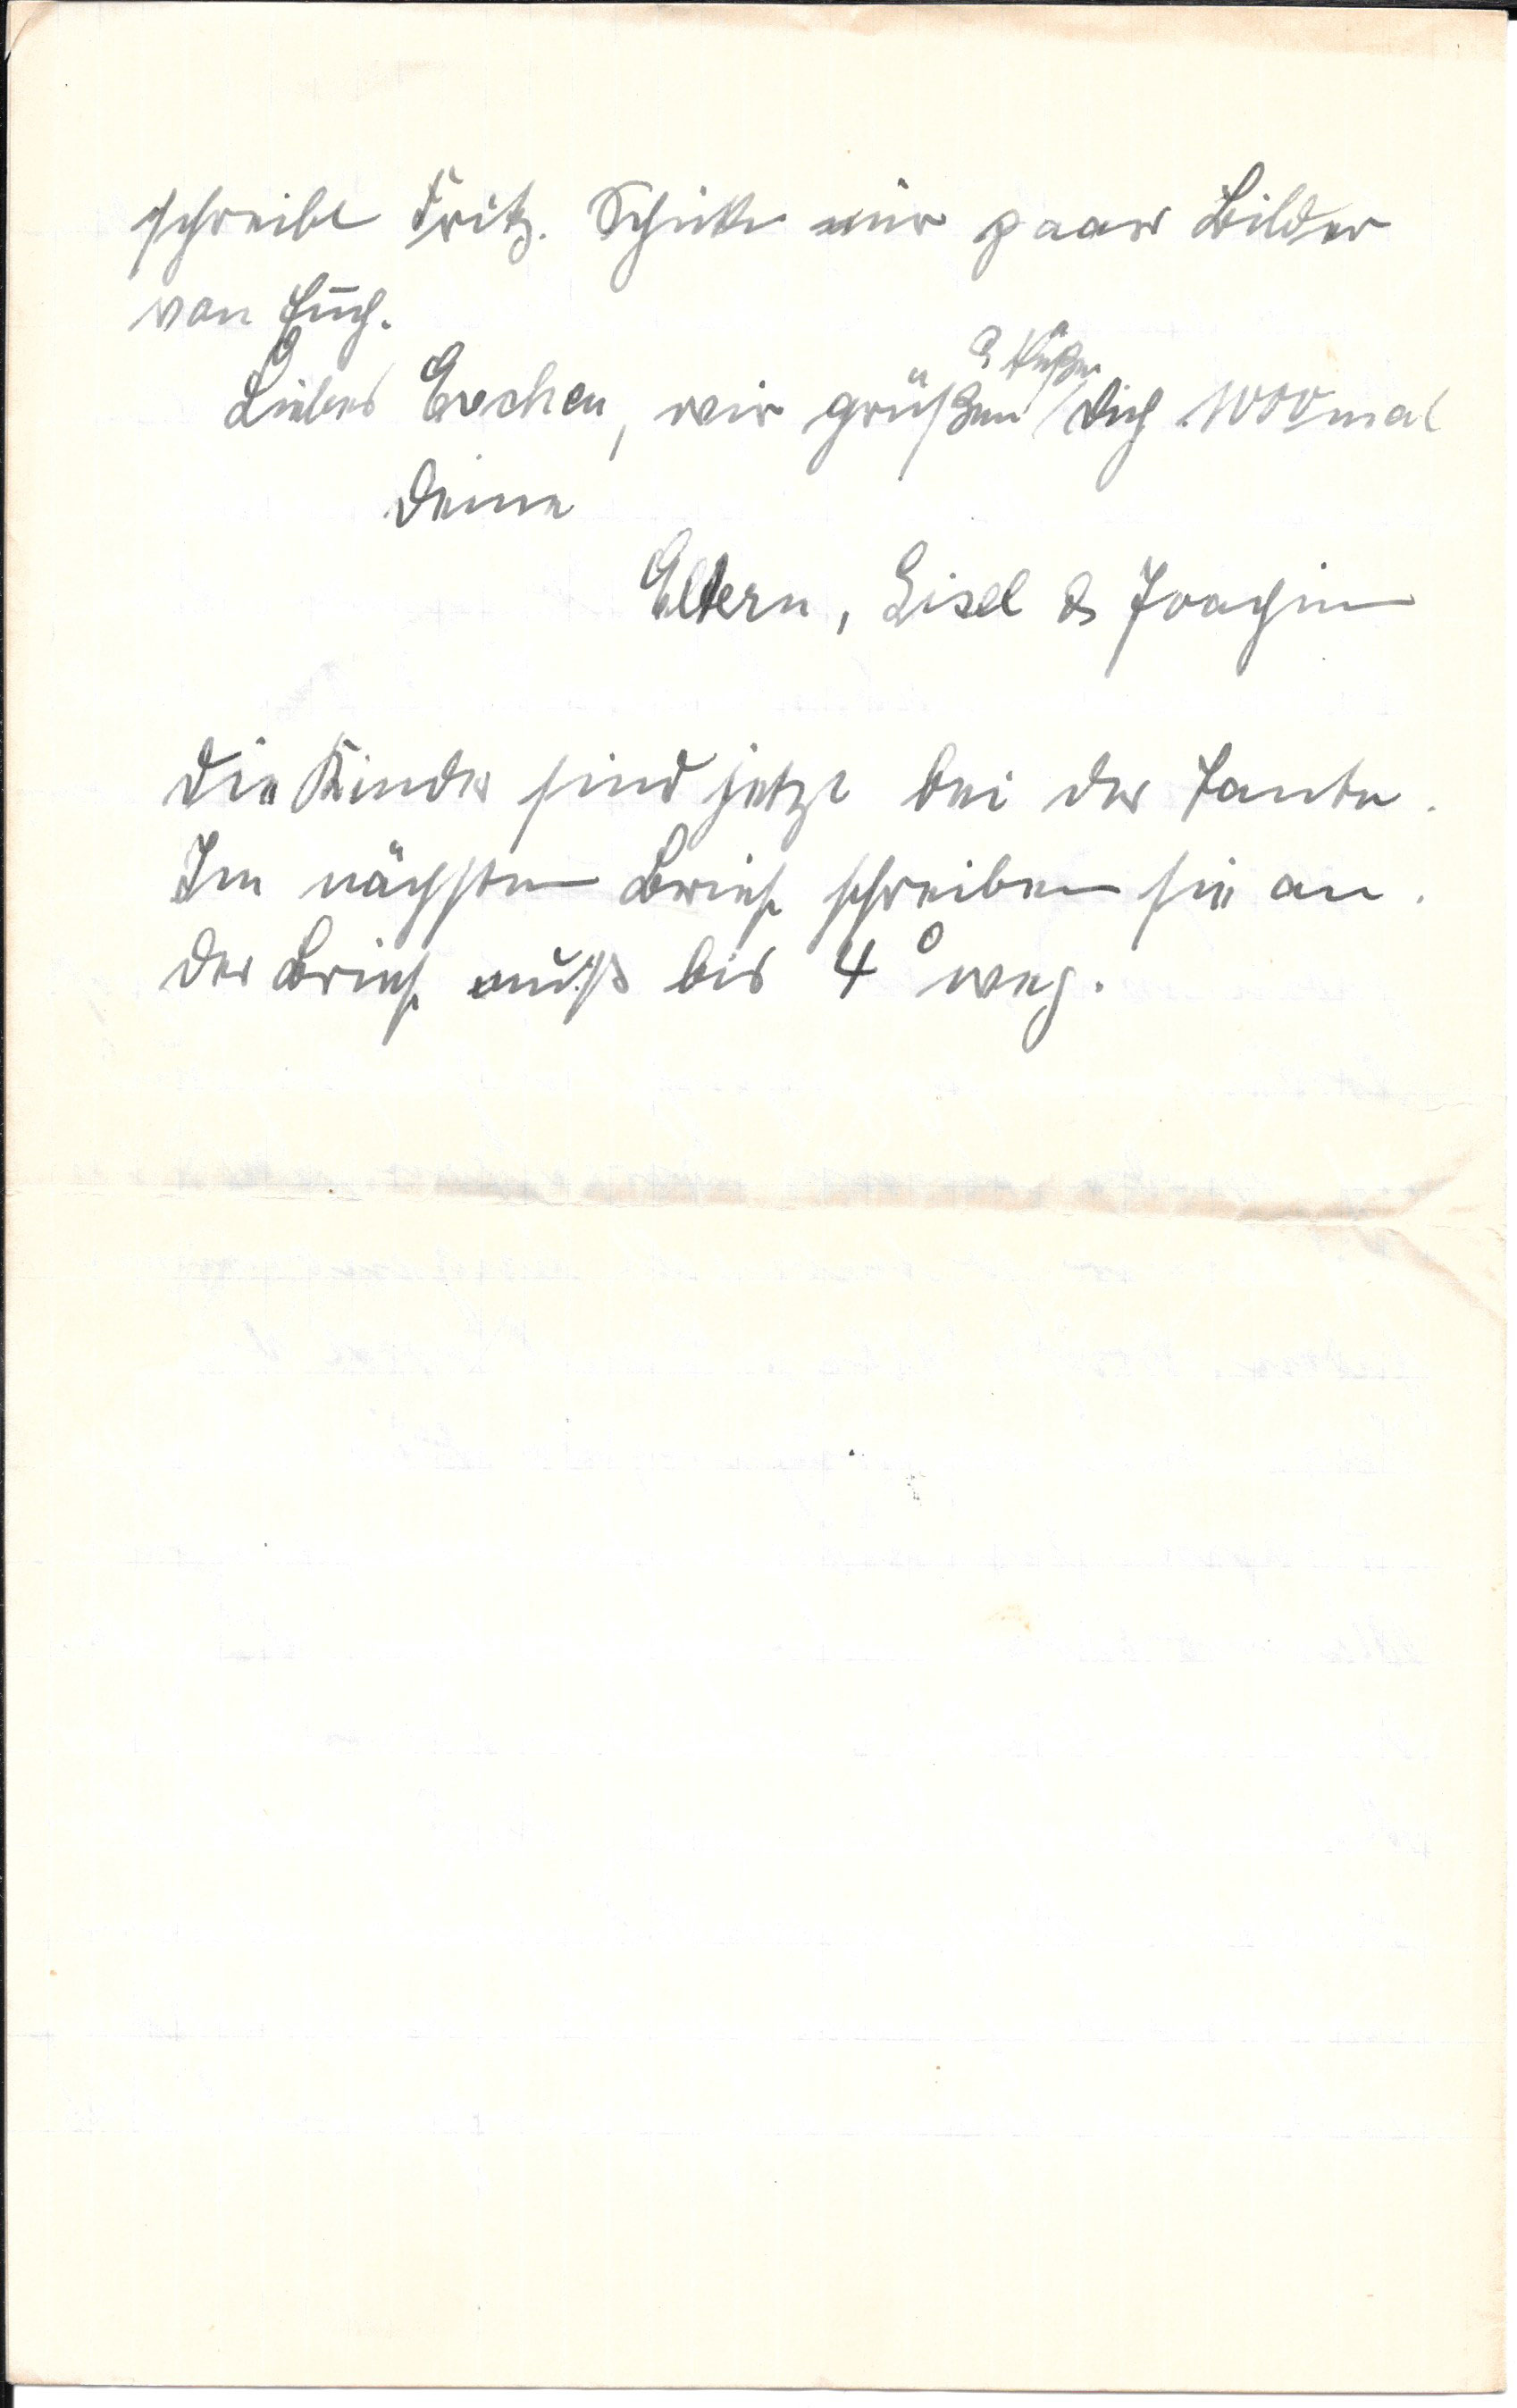 schreibt Fritz. Schickt mir paar Bilder
von Euch.
Liebes Evchen, wir grüßen & küßen Dich 1000 mal
Deine
Eltern, Lisel & Joachim
Die Kinder sind jetzt bei der Tante.
Im nächsten Brief schreiben sie an.
Der Brief muß bis 4° weg.